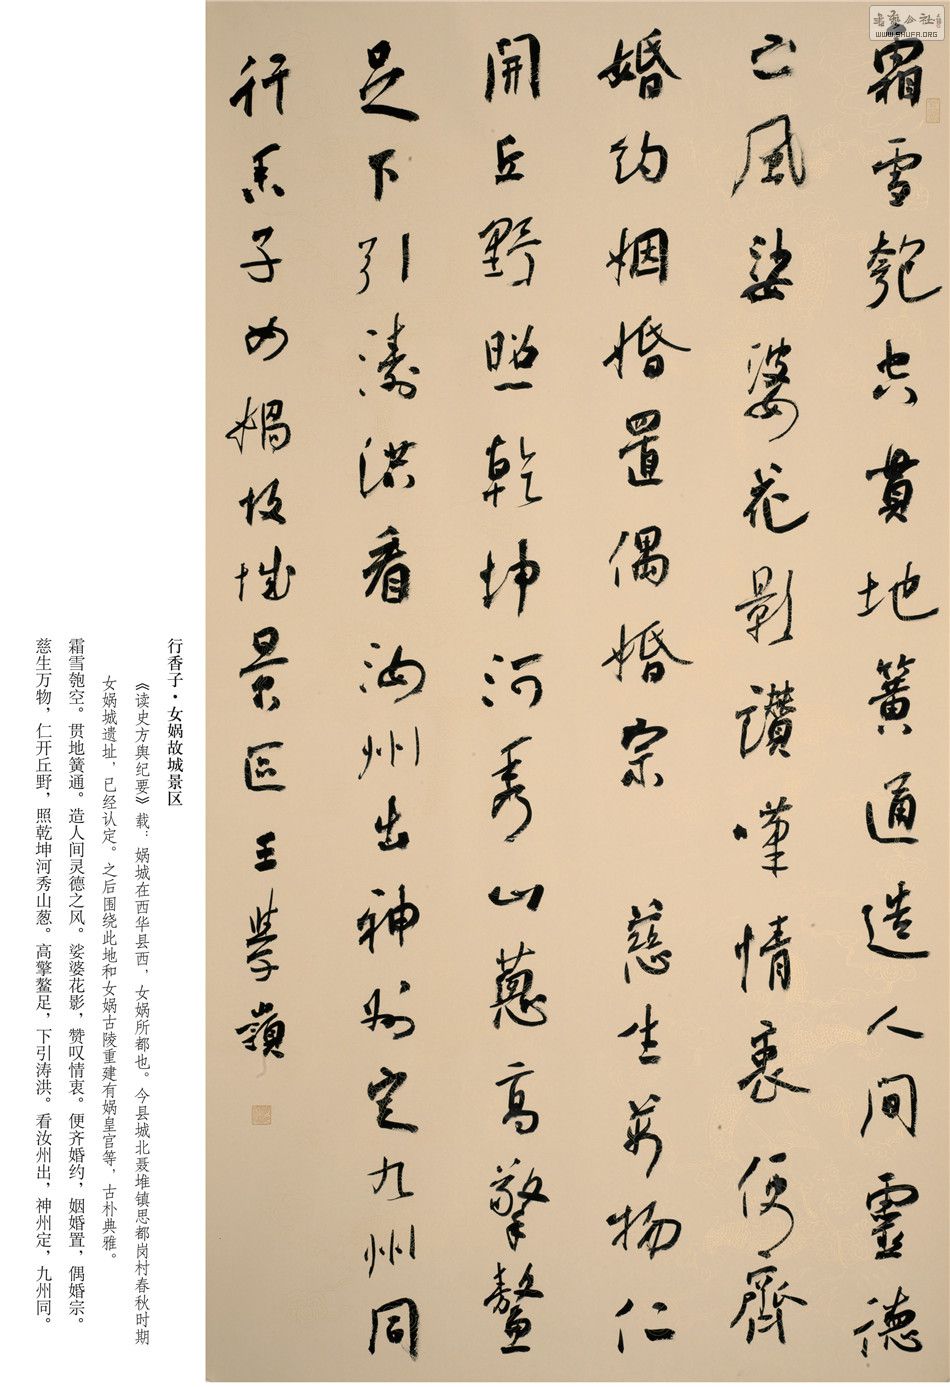 霜雪匏空貫地簧通造人間靈德
之風娑婆花影讚嘆情衷便齊
婚約姻婚置偶婚宗 慈生萬物仁
開丘野照乾坤河秀山蔥高擎鼇
足下引濤洪看汝州出神州定九州同
行香子女媧故城景區 王學嶺
行香子·女娲故城景区
《读史方舆纪要》载：娲城在西华县西，女娲所都也。今县城北聂堆镇思都岗村春秋时期
女娲城遗址，已经认定。之后围绕此地和女娲古陵重建有娲皇宫等，古朴典雅。
霜雪匏空。贯地簧通。造人间灵德之风。娑婆花影，赞叹情衷。便齐婚约，姻婚置，偶婚宗。
慈生万物，仁开丘野，照乾坤河秀山葱。高擎鳌足，下引涛洪。看汝州出，神州定，九州同。
書藝公社
WWW.SHUFA.ORG